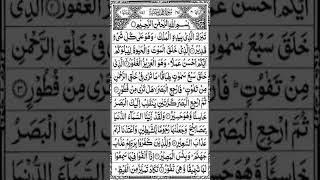 بِسْمِ اللّٰهِ الرَّحْمٰنِ الرَّحِیْمِ
تَبٰرَكَ الَّذِیْ بِیَدِهِ الْمُلْكُ وَهُوَ عَلٰى كُلِّ شَیْءٍ
قَدِیْرُ الَّذِیْ خَلَقَ الْمَوْتَ وَالْحَیٰوةَ لِیَبْلُوَكُمْ
اَیُّكُمْ اَحْسَنُ عَمَلًا وَهُوَ الْعَزِیْزُ الْغَفُوْرُ الَّذِیْ
خَلَقَ سَبْعَ سَمٰوٰتٍ طِبَاقًا مَا تَرٰى فِیْ خَلْقِ الرَّحْمٰنِ
مِنْ تَفٰوُتٍ فَارْجِعِ الْبَصَرَ هَلْ تَرٰى مِنْ فُطُوْرٍ
ثُمَّ ارْجِعِ الْبَصَرَ كَرَّتَیْنِ یَنْقَلِبْ اِلَیْكَ الْبَصَرُ
خَاسِئًا وَّهُوَ حَسِیْرٌ وَلَقَدْ زَیَّنَّا السَّمَآءَ الدُّنْیَا
بِمَصَابِیْحَ وَجَعَلْنٰهَا رُجُوْمًا لِّلشَّیٰطِیْنِ وَاَعْتَدْنَا لَهُمْ
عَذَابَ السَّعِیْرِ وَلِلَّذِیْنَ كَفَرُوْا بِرَبِّهِمْ عَذَابُ
جَهَنَّمَ وَبِئْسَ الْمَصِیْرُ اِذَآ اُلْقُوْا فِیْهَا سَمِعُوْا
لَهَا شَهِیْقًا وَّهِیَ تَفُوْرُ تَكَادُ تَمَیَّزُ مِنَ الْغَیْظِ